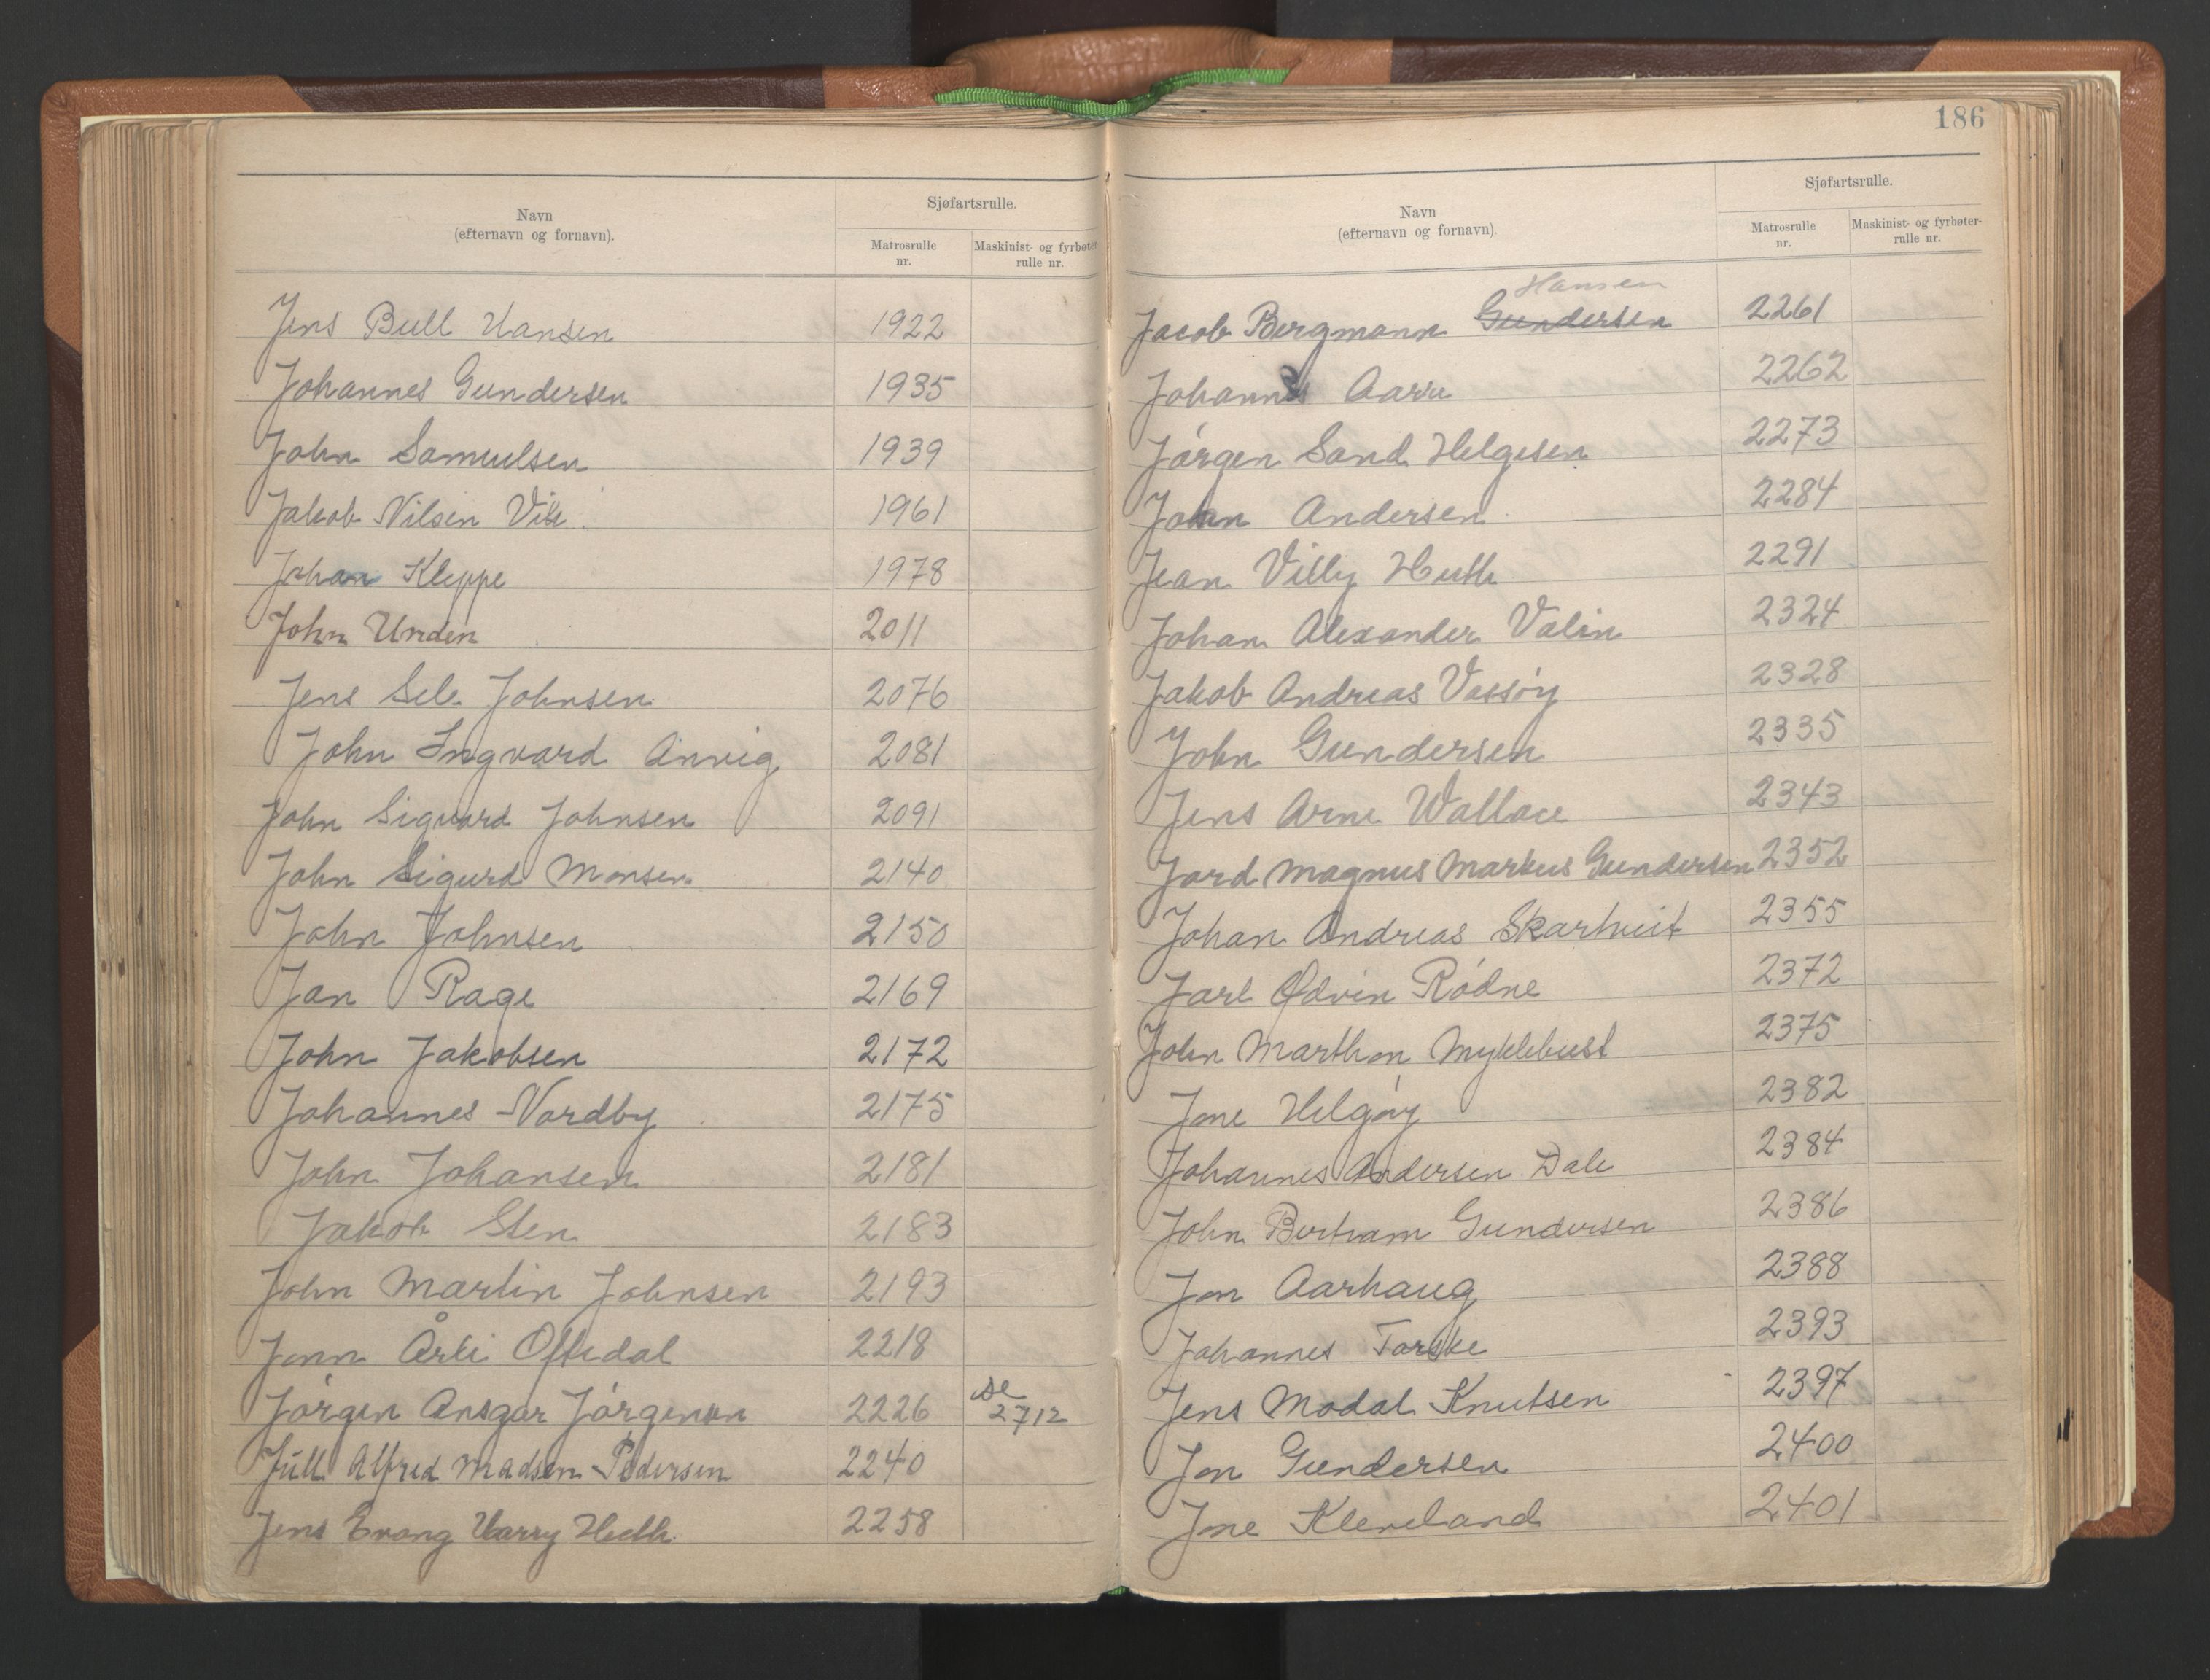 Navn
(efternavn og fornavn).
Sjøfartsrulle.
Matrosrulle
nr.
Maskinist- og fyrbøter
rulle nr.
Jens Bull Hansen 1922
Johannes Gundersen 1935
John Samuelsen 1939
Jakob Nilsen Vik 1961
Johan Kleppe 1978
John Unden 2011
Jens Sele Johnsen 2076
John Ingvard Anvig 2081
John Sigvard Johnsen 2091
John Sigurd Monsen 2140
John Johnsen 2150
Jan Rage 2169
John Jakobsen 2172
Johannes Nordby 2175
John Johansen 2181
Jakob Sten 2183
John Martin Johnsen 2193
Jonn Årli Oftedal 2218
Jørgen Ansgar Jørgensen 2226 se 2712
Jull Alfred Madsen Pedersen 2240
Jens Evang Harry Heth 2258
186
Navn
(efternavn og fornavn).
Sjøfartsrulle.
Matrosrulle
nr.
Maskinist- og fyrbøter-
rulle nr.
Hansen
Jacob Bergmann Gundersen 2261
Johannes Aarre 2262
Jørgen Sand Helgesen 2273
John Andersen 2284
Jean Villy Huth 2291
Johan Alexander Valin 2324
Jakob Andreas Vassøy 2328
John Gundersen 2335
Jens Arne Wallace 2343
Jard Magnus Markus Gundersen 2352
Johan Andreas Skartveit 2355
Jarl Ødvin Rødne 2372
John Marthon Myklebust 2375
Jone Helgøy 2382
Johannes Andersen Dale 2384
John Bertram Gundersen 2386
Jon Aarhaug 2388
Johannes Torske 2393
Jens Modal Knutsen 2397
Jon Gundersen 2400
Jone Kleveland 2401